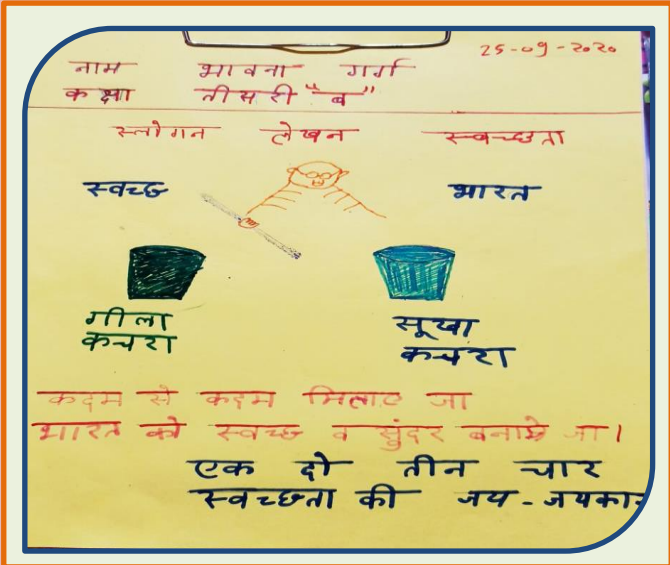 25-09-2020
नाम भावना गर्ग
कक्षा तीसरी "ब"
स्लोगन लेखन स्वच्छता
स्वच्छ भारत
गीला
कचरा
सूखा
कचरा
कदम से कदम मिलाए जा
भारत को स्वच्छ व सुंदर बनाये जा।
एक दो तीन चार
स्वच्छता की जय-जयकार